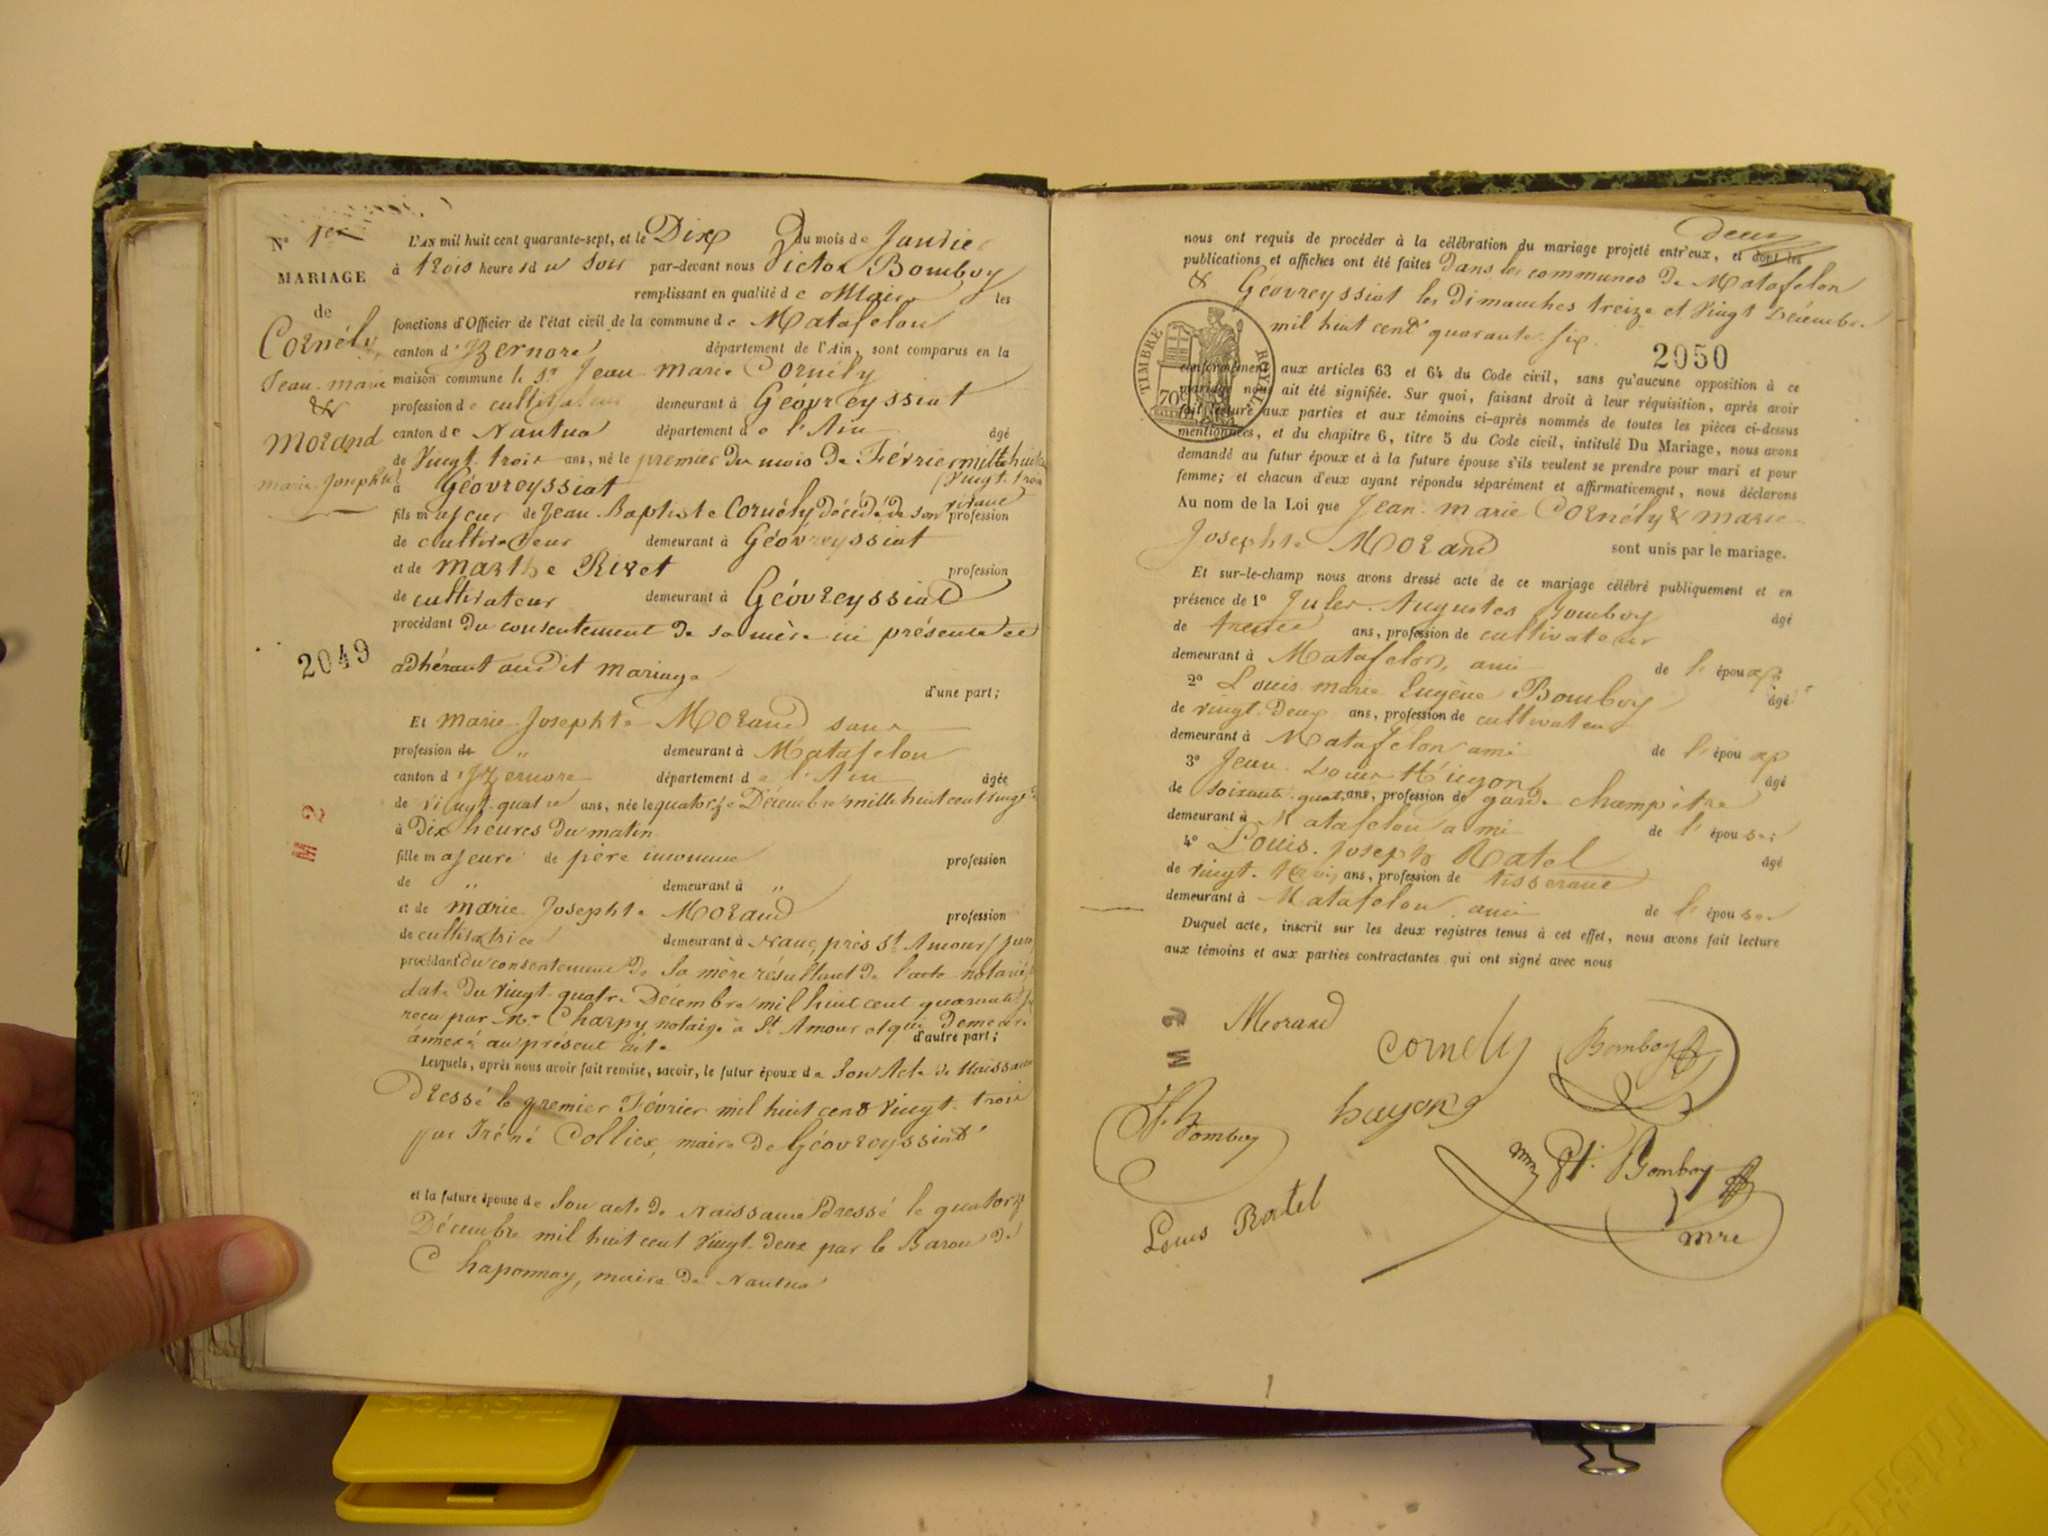 N° 1er
MARIAGE
de
Cornély
Jean-marie
&
Morand
marie Josephte
L'AN mil huit cent quarante-sept, et le Dix du mois de Janvier
à trois heures du soir par-devant nous Victor Bomboy
remplissant en qualité de Maire les
fonctions d'Officier de l'état civil de la commune de Matafelon
canton d'Izernore département de l'Ain, sont comparus en la
maison commune le Sr Jean marie Cornély
profession de cultivateur demeurant à Géovreyssiat
canton de Nantua département de l'Ain âgé
de Vingt-trois ans, né le premier du mois de Février mille huit cent
Vingt-trois
à Géovreyssiat
fils majeur de Jean-Baptiste Cornély décédé de son vivant profession
de cultivateur demeurant à Géovreyssiat
et de marthe Rivet profession
de cultivateur demeurant à Géovreyssiat
procédant du consentement de sa mère ici présente et
adhérant audit mariage
d'une part;
2049
Et marie Josephte Morand sans
profession de " demeurant à Matafelon
canton d'Izernore département de l'Ain âgée
de vingt-quatre ans, née le quatorze Décembre mille huit cent vingt
à Dix heures du matin
fille majeure de père inconnu profession
de " demeurant à "
et de marie Josephte Morand profession
de cultivatrice demeurant à Nanc, près St Amour, Jura
procédant du consentement de sa mère résultant de l'acte notarié
date du vingt-quatre Décembre mil huit cent quarante
reçu par Me Charpy notaire à St Amour et qui demeure
annexé au présent acte d'autre part;
Lesquels, après nous avoir fait remise, savoir, le futur époux de son Acte de Naissance
Dressé le premier Février mil huit cent vingt-trois
par Iréné Colliex, maire de Géovreyssiat
et la future épouse de son acte de Naissance Dressé le quatorze
Décembre mil huit cent vingt-deux par le Baron de
Chaponnay, maire de Nantua
M 2
deux
nous ont requis de procéder à la célébration du mariage projeté entr'eux, et dont les
publications et affiches ont été faites dans les communes de Matafelon
& Géovreyssiat les dimanches treize et vingt Décembre
mil huit cent quarante-six
2050
TIMBRE ROYAL
70
conformément aux articles 63 et 64 du Code civil, sans qu'aucune opposition à ce
mariage nous ait été signifiée. Sur quoi, faisant droit à leur réquisition, après avoir
fait lecture aux parties et aux témoins ci-après nommés de toutes les pièces ci-dessus
mentionnées, et du chapitre 6, titre 5 du Code civil, intitulé Du Mariage, nous avons
demandé au futur époux et à la future épouse s'ils veulent se prendre pour mari et pour
femme; et chacun d'eux ayant répondu séparément et affirmativement, nous déclarons
Au nom de la Loi que Jean-marie Cornély & marie
Josephte Morand sont unis par le mariage.
Et sur-le-champ nous avons dressé acte de ce mariage célébré publiquement et en
présence de 1° Jules Augustes Bomboy âgé
de trente ans, profession de cultivateur
demeurant à Matafelon, ami de l'époux;
2° Louis marie Eugène Bomboy âgé
de vingt-deux ans, profession de cultivateur
demeurant à Matafelon ami de l'époux
3° Jean-Louis Hugon âgé
de soixante-quatre ans, profession de garde champêtre
demeurant à Matafelon ami de l'épouse;
4° Louis-Joseph Ratel âgé
de vingt-trois ans, profession de tisserand
demeurant à Matafelon, ami de l'épouse
Duquel acte, inscrit sur les deux registres tenus à cet effet, nous avons fait lecture
aux témoins et aux parties contractantes qui ont signé avec nous
M 2
Morand
cornely
Bomboy
Bomboy
hugon
Bomboy
mre
Louis Ratel